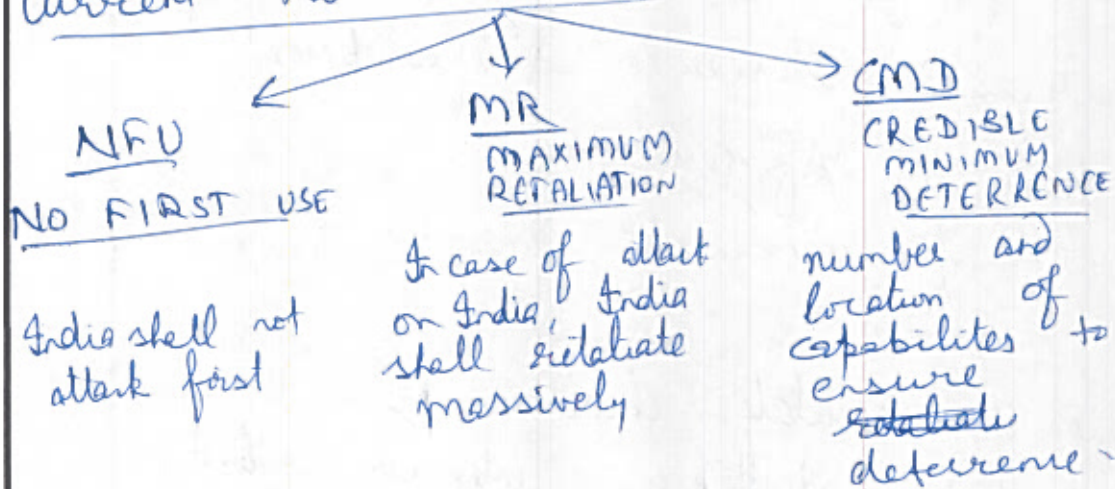 Current
NFU
NO FIRST USE
India shall not
attack first
MR
MAXIMUM
RETALIATION
In case of attack
on India, India
shall retaliate
massively
CMD
CREDIBLE
MINIMUM
DETERRENCE
number and
location of
capabilites to
ensure
retaliate
deterrence